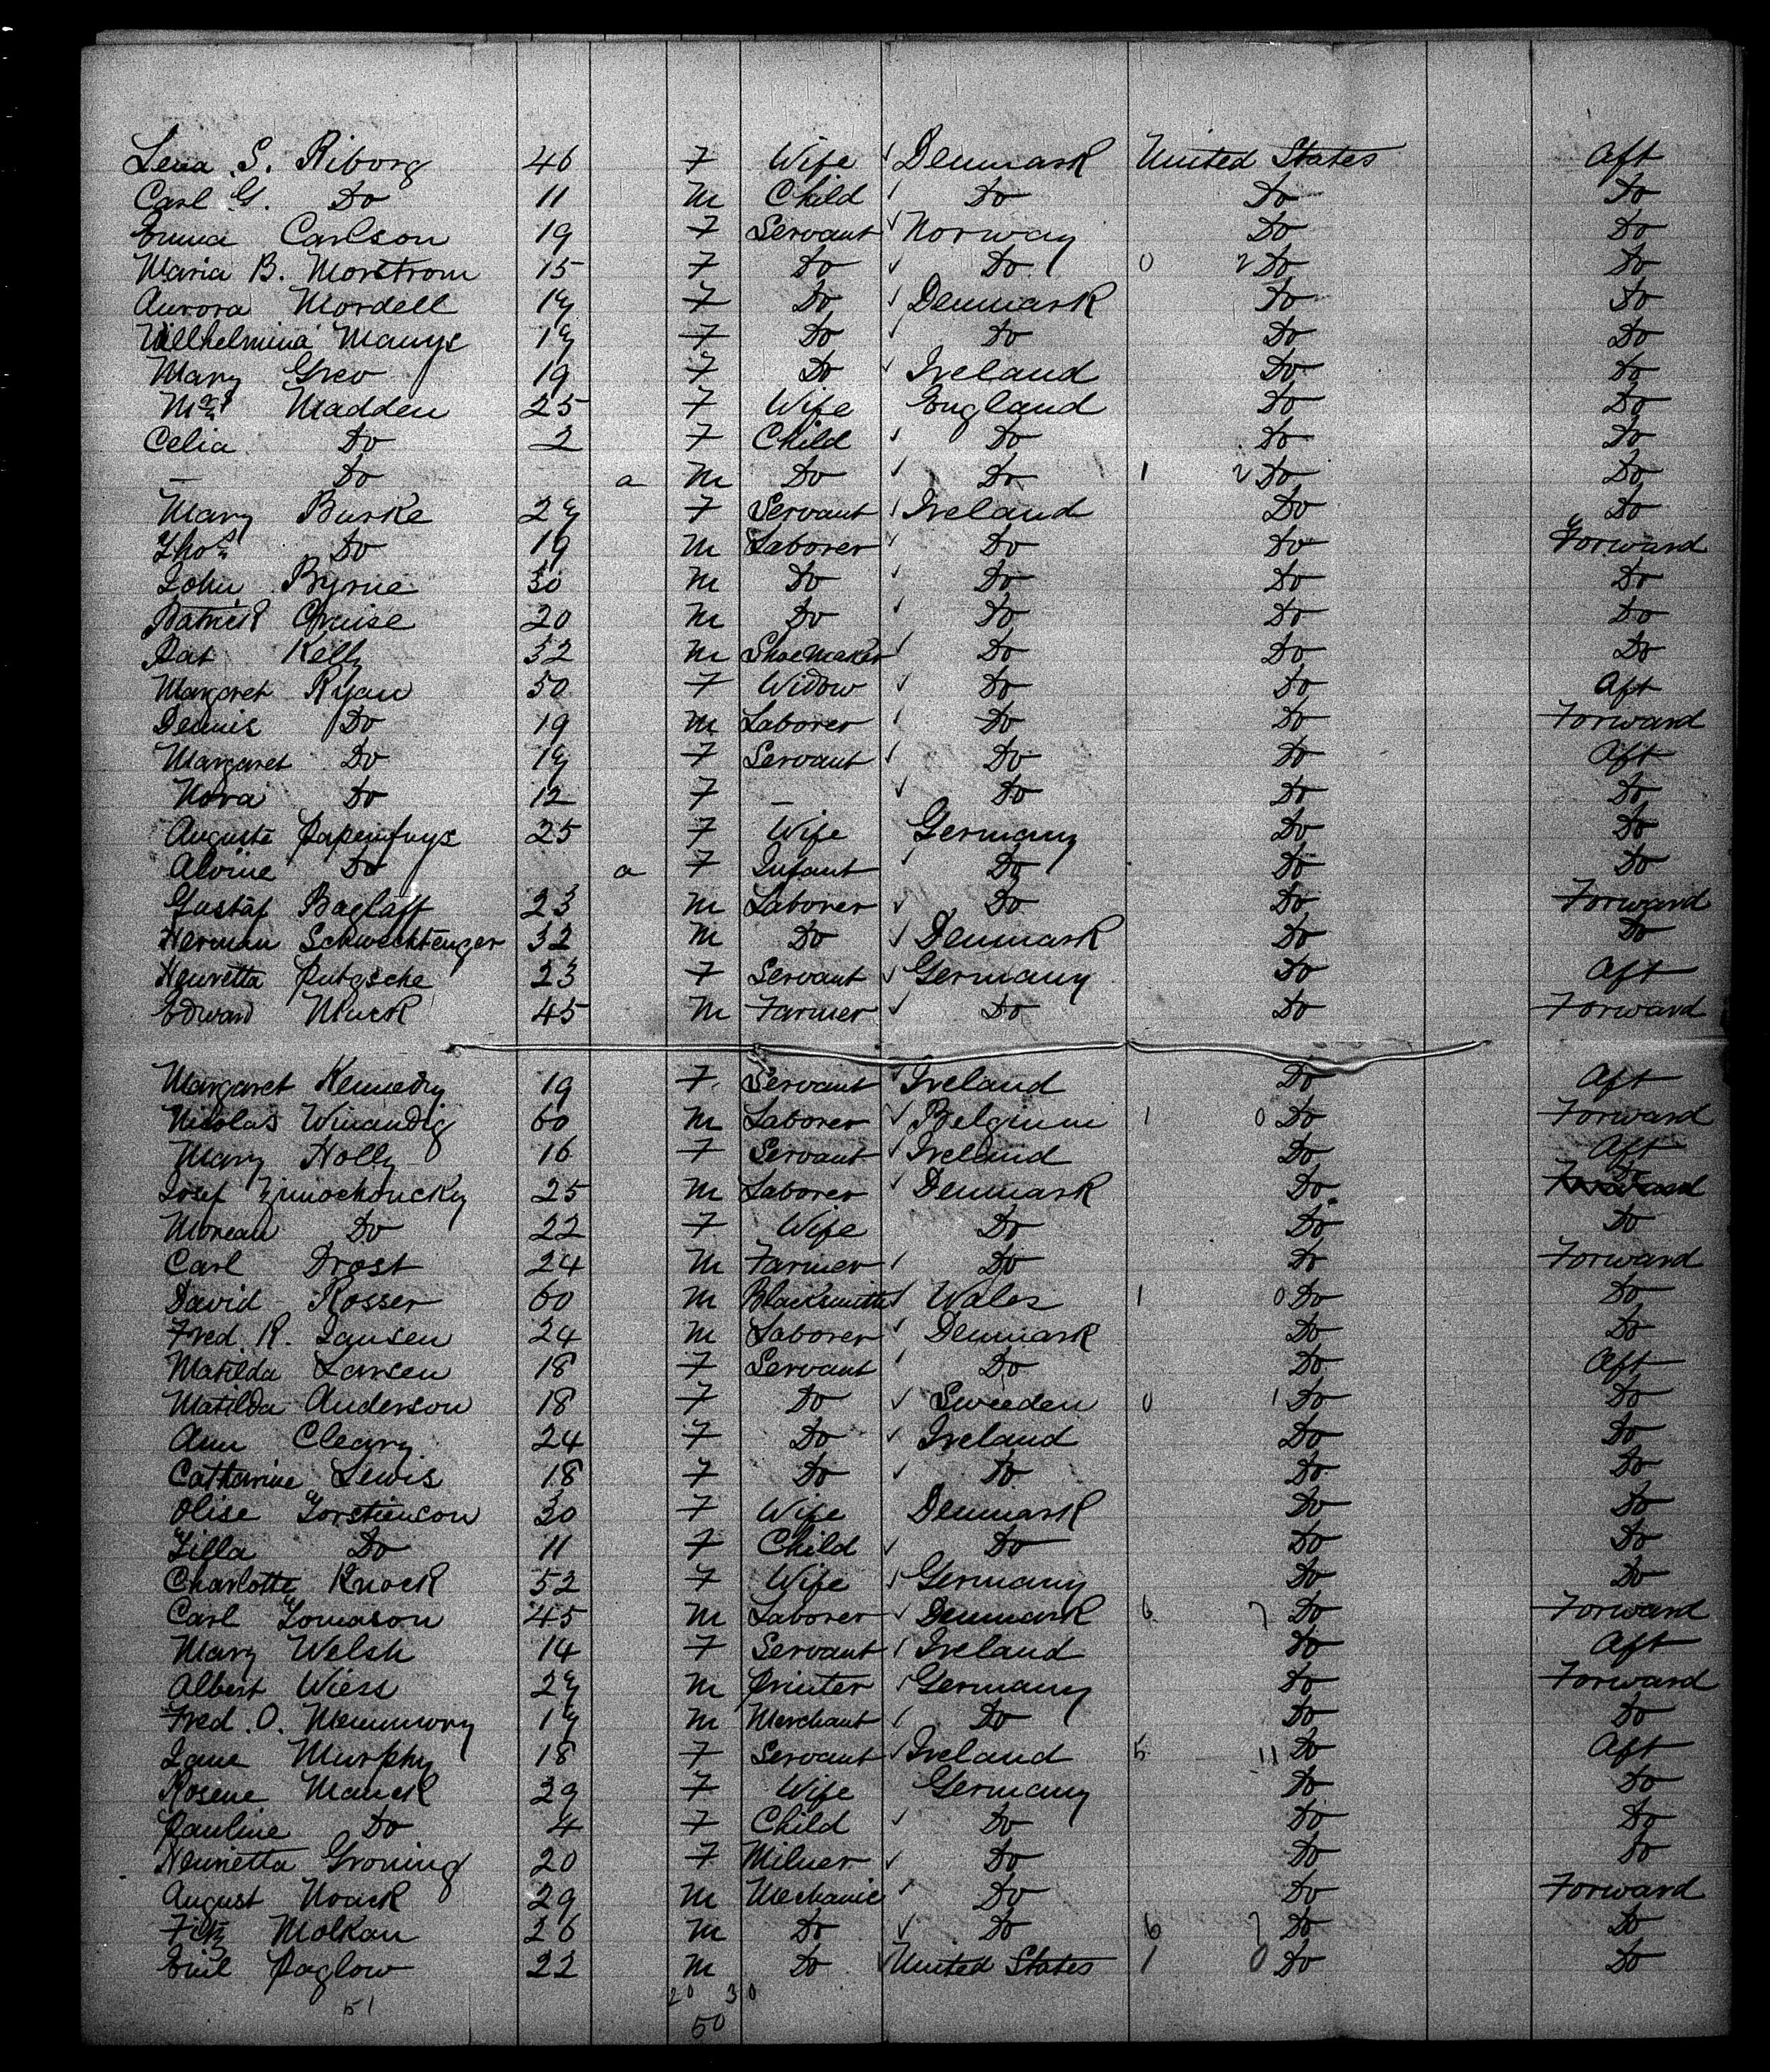 Lena S. Riborg 46 F Wife Denmark United States Aft
Carl G. Do 11 M Child Do Do Do
Emma Carlson 19 F Servant Norway Do Do
Maria B. Morstrom 15 F Do Do 0 2 Do Do
Aurora Mordell 19 F Do Denmark Do Do
Willhelmina Mauys 19 F Do Do Do Do
Mary Greo 19 F Do Ireland Do Do
Mrs Madden 25 F Wife England Do Do
Celia Do 2 F Child Do Do Do
— Do a M Do Do 1 2 Do Do
Mary Burke 29 F Servant Ireland Do Do
Thos Do 19 M Laborer Do Do Forward
John Byrne 30 M Do Do Do Do
Patrick Cruise 20 M Do Do Do Do
Pat Kelly 32 M ShoeMaker Do Do Do
Margaret Ryan 50 F Widow Do Do Aft
Dennis Do 19 M Laborer Do Do Forward
Margaret Do 19 F Servant Do Do Aft
Nora Do 12 F — Do Do Do
Auguste Papenfuys 25 F Wife Germany Do Do
Alvine Do a F Infant Do Do Do
Gustaf Baglaff 23 M Laborer Do Do Forward
Herman Schwechtenger 32 M Do Denmark Do Do
Henretta Putzsche 23 F Servant Germany Do Aft
Edward Muck 45 M Farmer Do Do Forward
Margaret Kennedy 19 F Servant Ireland Do Aft
Nicolas Winandig 60 M Laborer Belgium 1 0 Do Forward
Mary Holly 16 F Servant Ireland Do Aft
Josef 25 M Laborer Denmark Do Do
Do 22 F Wife Do Do Do
Carl Drost 24 M Farmer Do Do Forward
David Rosser 60 M Blacksmith Wales 1 0 Do Do
Fred. R. Jansen 24 M Laborer Denmark Do Do
Matilda Larsen 18 F Servant Do Do Aft
Matilda Anderson 18 F Do Sweeden 0 1 Do Do
Ann Cleary 24 F Do Ireland Do Do
Catharine Lewis 18 F Do Do Do Do
Olise Torstienson 30 F Wife Denmark Do Do
Tilla Do 11 F Child Do Do Do
Charlotte Knock 52 F Wife Germany Do Do
Carl Tomason 45 M Laborer Denmark 6 7 Do Forward
Mary Welsh 14 F Servant Ireland Do Aft
Albert Wiess 29 M Printer Germany Do Forward
Fred. O. 19 M Merchant Do Do Do
Jane Murphy 18 F Servant Ireland 5 11 Do Aft
Rosene Manck 29 F Wife Germany Do Do
Pauline Do 4 F Child Do Do Do
Henrietta Groning 20 F Milner Do Do Do
August Noack 29 M Mechanic Do Do Forward
Molkan 26 M Do Do 6 7 Do Do
Emil Paglow 22 M Do United States 1 0 Do Do
51 20 30
50